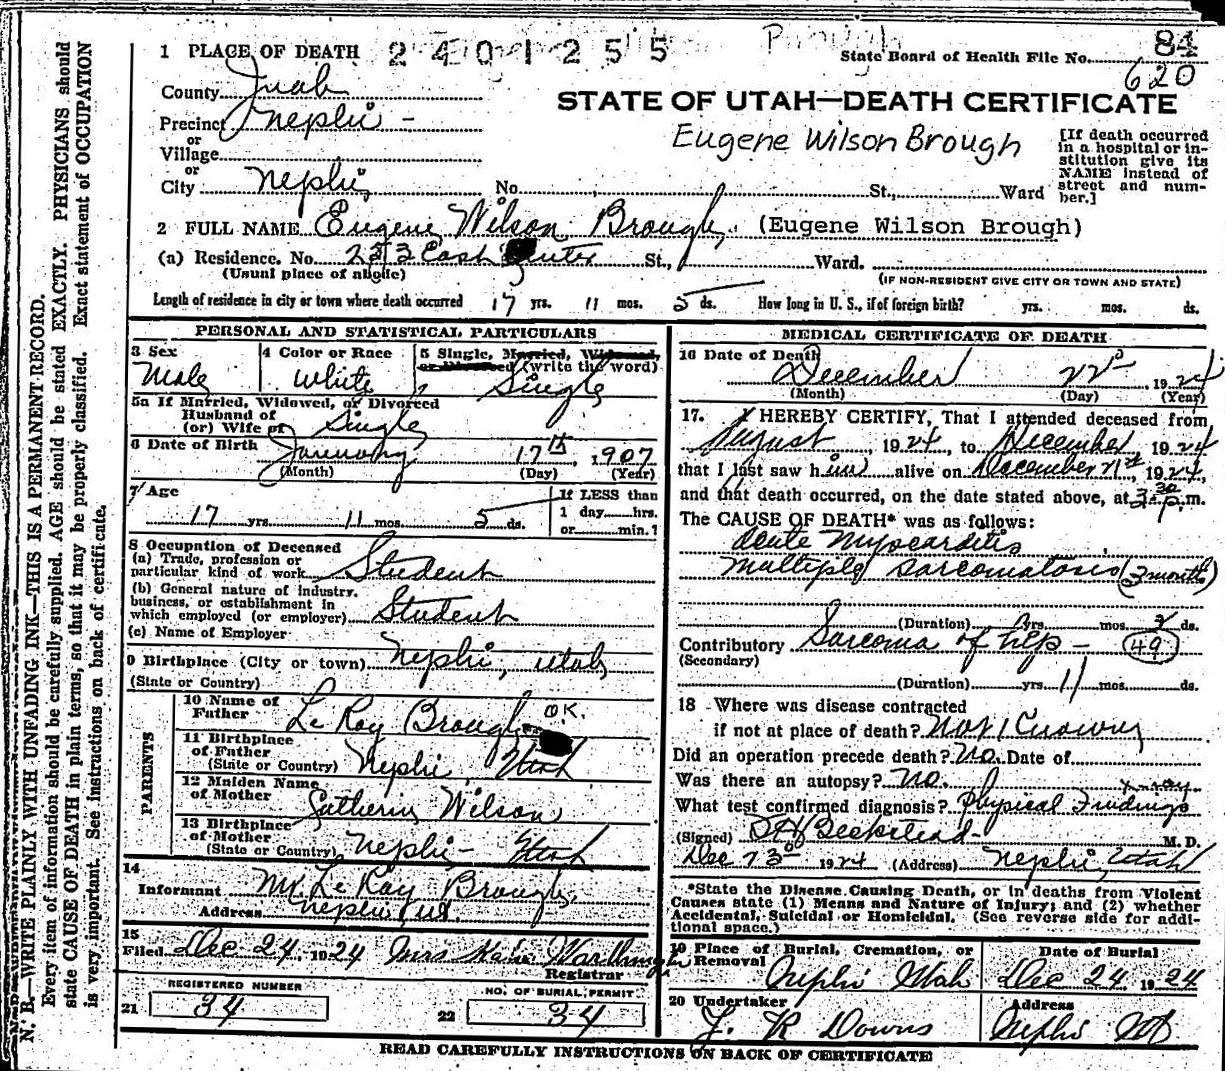 N. B.—WRITE PLAINLY WITH UNFADING INK—THIS IS A PERMANENT RECORD.
Every item of information should be carefully supplied. AGE should be stated EXACTLY. PHYSICIANS should
state CAUSE OF DEATH in plain terms, so that it may be properly classified. Exact statement of OCCUPATION
is very important. See instructions on back of certificate.
1 PLACE OF DEATH 2401255
State Board of Health File No. 84
620
County Juab
STATE OF UTAH—DEATH CERTIFICATE
Precinct Nephi -
or
Village
or
City Nephi No. St., Ward
Eugene Wilson Brough
[If death occurred
in a hospital or in-
stitution give its
NAME instead of
street and num-
ber.]
2 FULL NAME Eugene Wilson Brough. (Eugene Wilson Brough)
(a) Residence. No. East Center St., Ward.
(Usual place of abode) (IF NON-RESIDENT GIVE CITY OR TOWN AND STATE)
Length of residence in city or town where death occurred 17 yrs. 11 mos. 5 ds. How long in U. S., if of foreign birth? yrs. mos. ds.
PERSONAL AND STATISTICAL PARTICULARS
3 Sex
Male
4 Color or Race
White
5 Single, Married, Widowed,
or Divorced (write the word)
Single
5a If Married, Widowed, or Divorced
Husband of
(or) Wife of Single
6 Date of Birth January 17th, 1907
(Month) (Day) (Year)
7 Age
17 yrs. 11 mos. 5 ds.
If LESS than
1 day hrs.
or min.?
8 Occupation of Deceased
(a) Trade, profession or
particular kind of work Student
(b) General nature of industry,
business, or establishment in
which employed (or employer) Student
(c) Name of Employer
9 Birthplace (City or town) Nephi, Utah
(State or Country)
PARENTS
10 Name of
Father Le Roy Brough O.K.
11 Birthplace
of Father
(State or Country) Nephi, Utah
12 Maiden Name
of Mother Wilson
13 Birthplace
of Mother
(State or Country) Nephi - Utah
14
Informant Mr. Le Roy Brough
Address Nephi, Ut.
15
Filed Dec 24, 1924 Mrs
Registrar
REGISTERED NUMBER
21 34
NO. OF BURIAL PERMIT
22 34
MEDICAL CERTIFICATE OF DEATH
16 Date of Death
December 22 1924
(Month) (Day) (Year)
17. I HEREBY CERTIFY, That I attended deceased from
August, 1924, to December, 1924
that I last saw him alive on December 21st, 1924,
and that death occurred, on the date stated above, at 3:30 p.m.
The CAUSE OF DEATH* was as follows:
Acute Myocarditis
Multiple Sarcomatosis (3 months)
(Duration) yrs. mos. ds.
Contributory Sarcoma of hip - 49
(Secondary)
(Duration) yrs. 11 mos. ds.
18 Where was disease contracted
if not at place of death? Not Known
Did an operation precede death? No. Date of
Was there an autopsy? No. X-ray
What test confirmed diagnosis? Physical Findings
(Signed) Beckstead M. D.
Dec 23 1924 (Address) Nephi, Utah
*State the Disease Causing Death, or in deaths from Violent
Causes state (1) Means and Nature of Injury; and (2) whether
Accidental, Suicidal or Homicidal. (See reverse side for addi-
tional space.)
19 Place of Burial, Cremation, or
Removal
Nephi Utah
Date of Burial
Dec 24 1924
20 Undertaker
J. R. Downs
Address
Nephi Ut.
READ CAREFULLY INSTRUCTIONS ON BACK OF CERTIFICATE